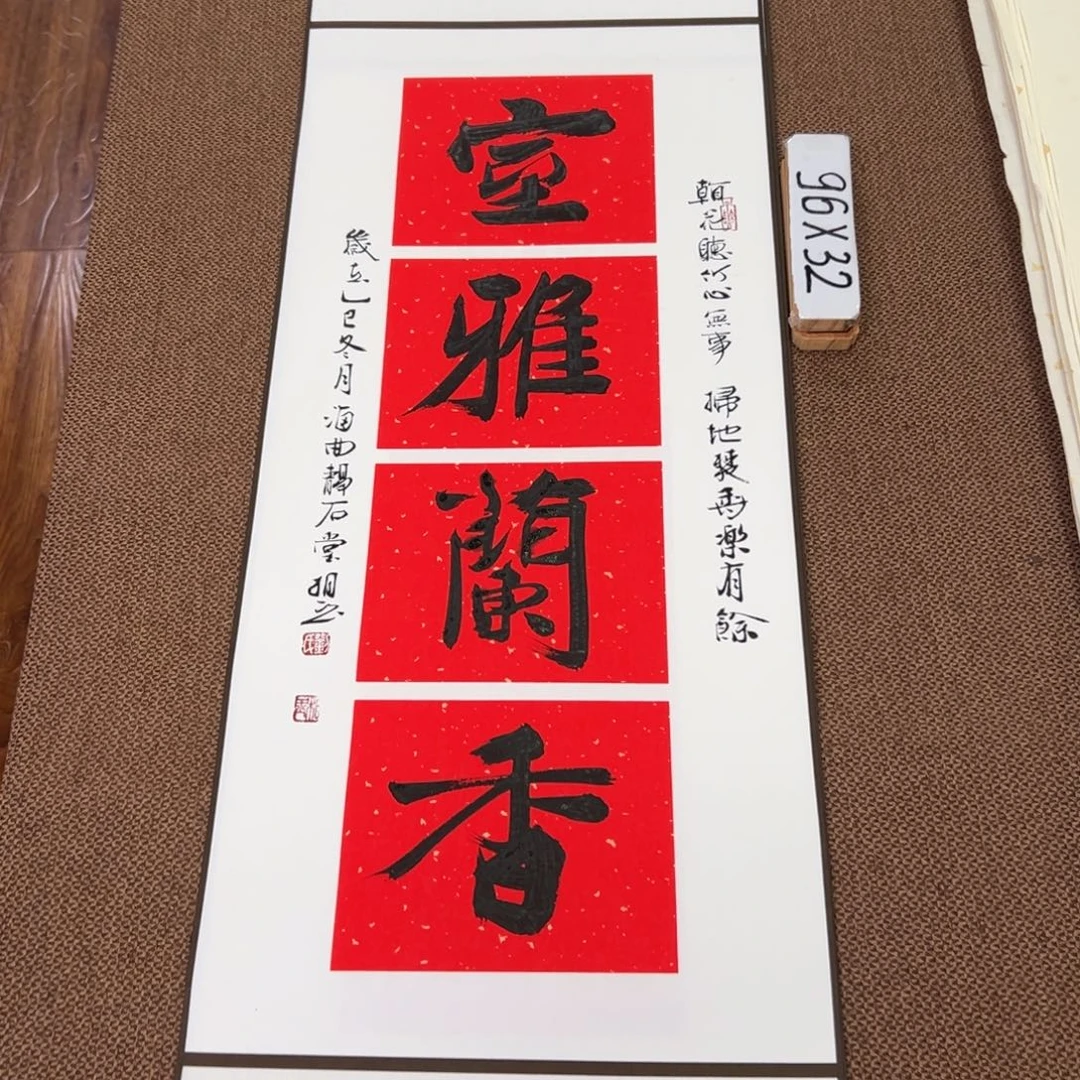 室雅蘭香
花聽竹心無事 掃地焚香樂有餘
歲在乙巳冬月海曲靜石堂
96X32